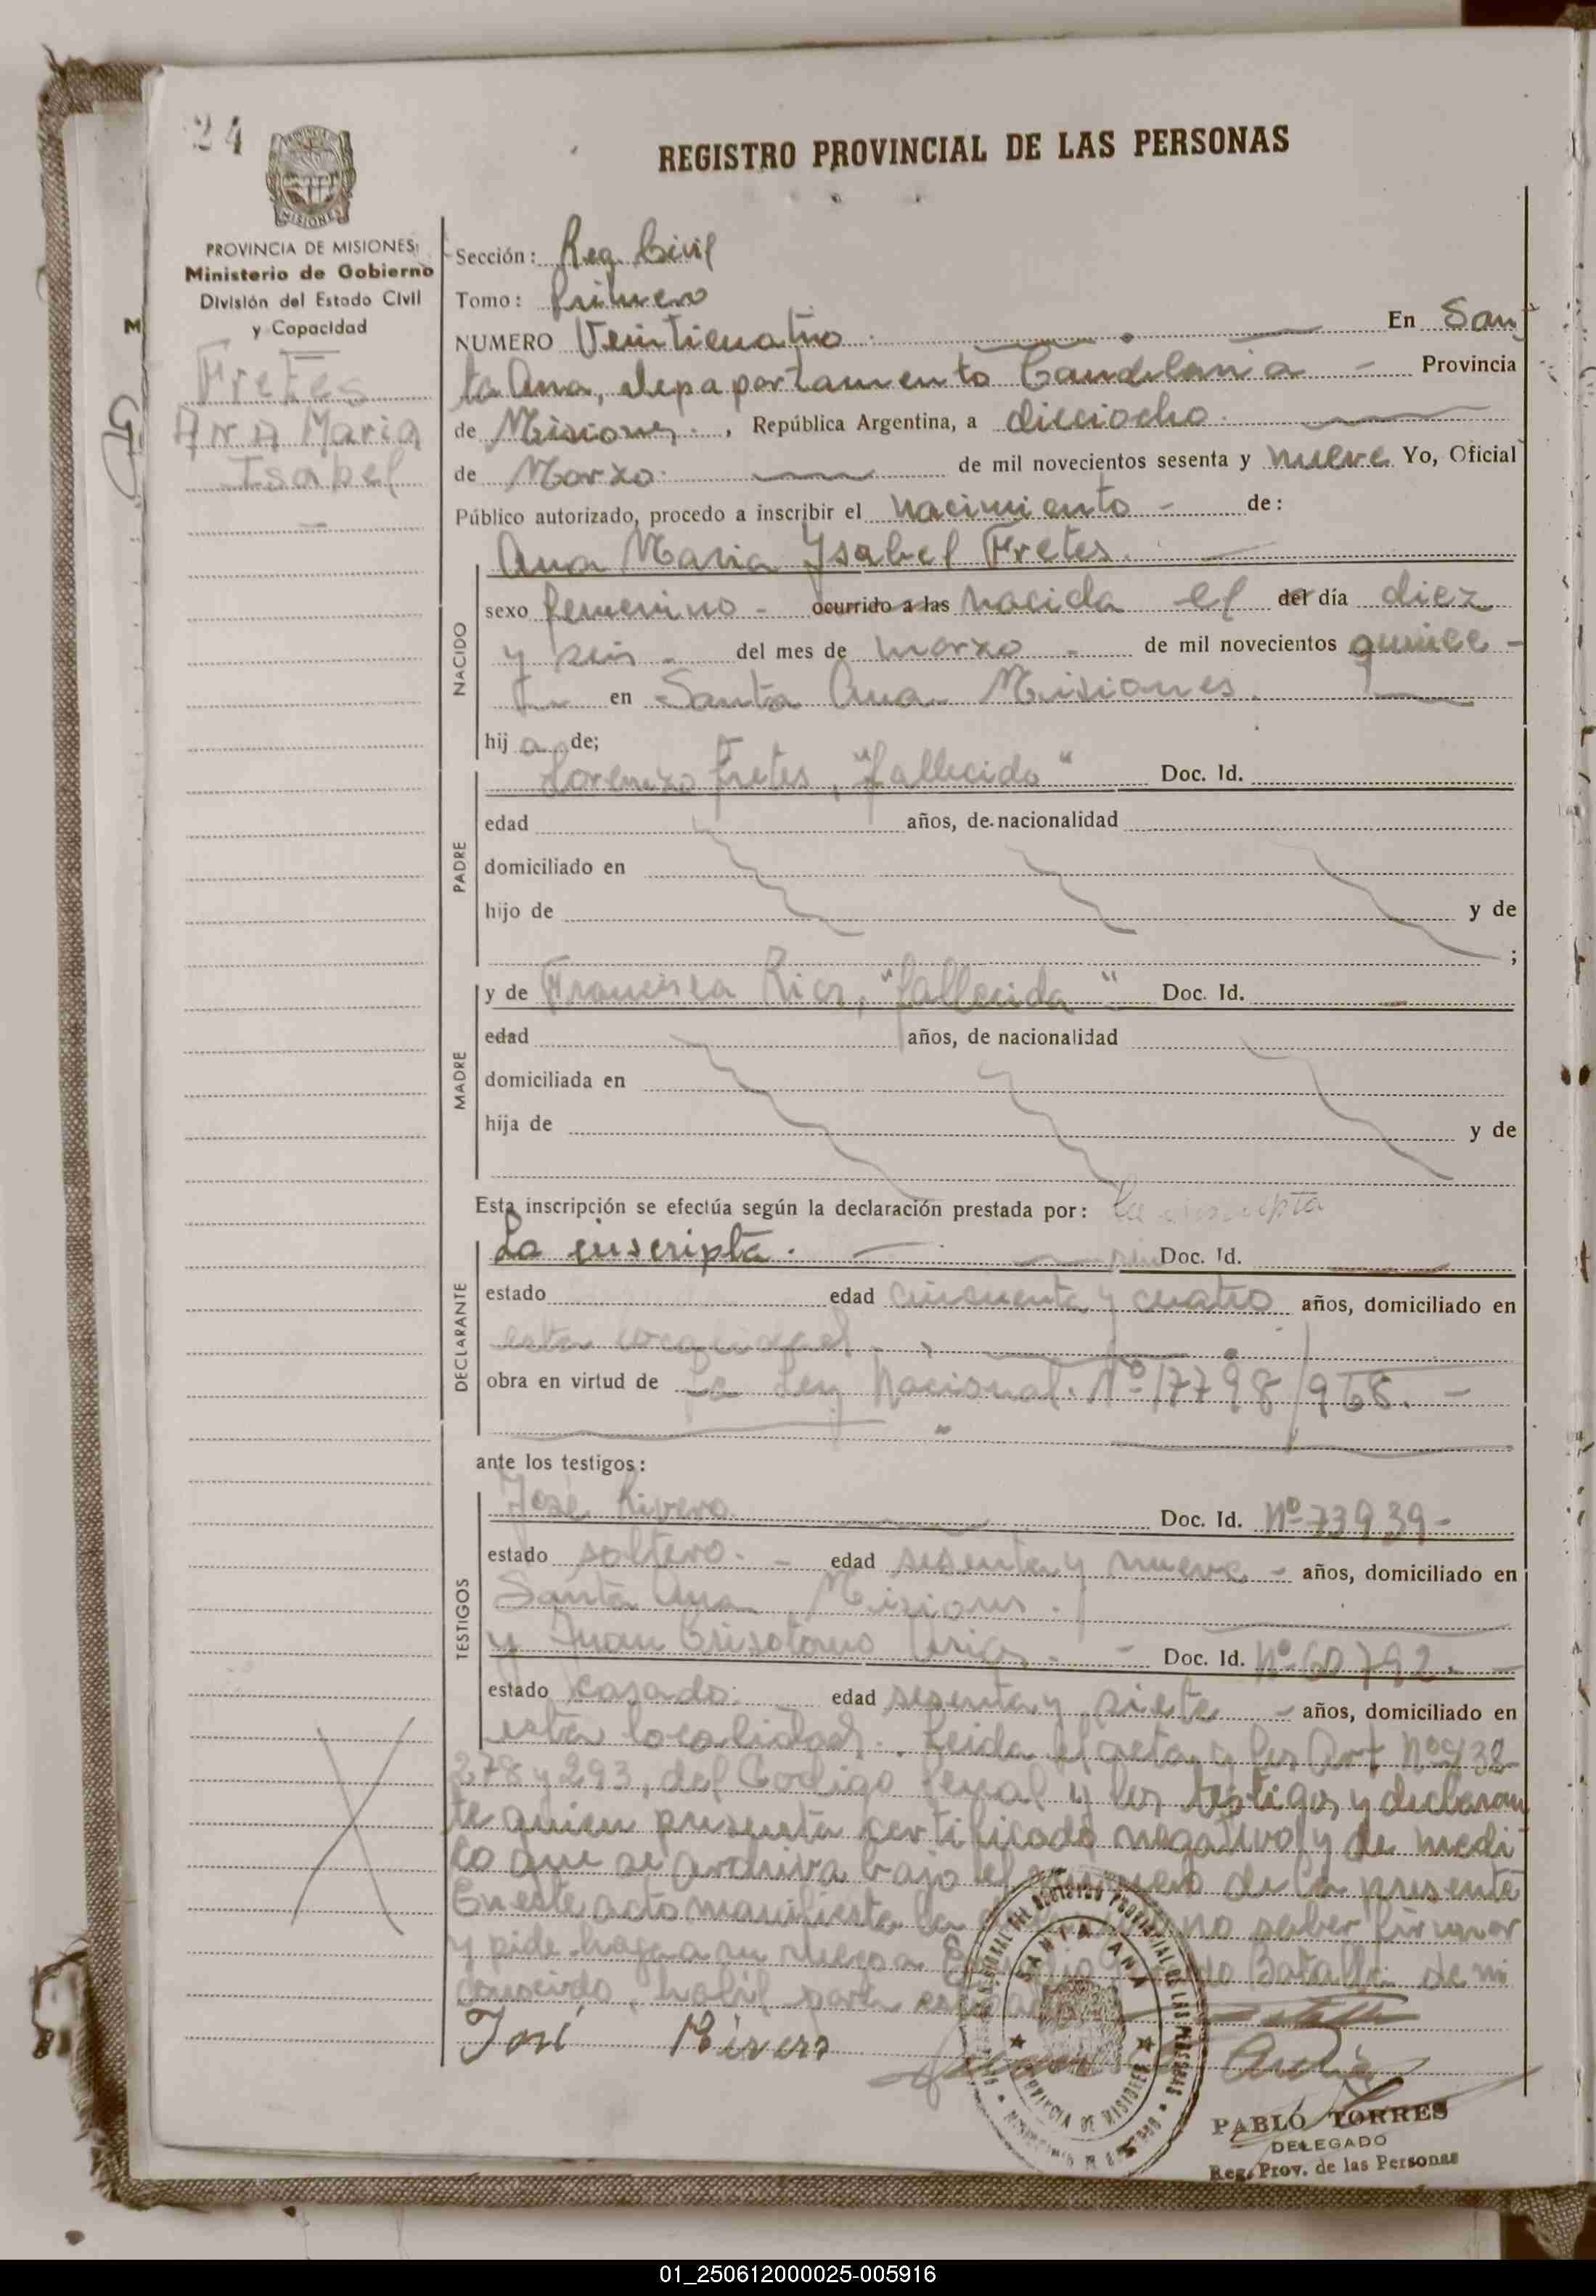 24
REGISTRO PROVINCIAL DE LAS PERSONAS
PROVINCIA DE MISIONES
Ministerio de Gobierno
División del Estado Civil
y Capacidad
Fretes
Ana Maria
Isabel
Sección: Reg. Civil
Tomo: Primero
NUMERO Veinticuatro En San
ta Ana, depapartamento Candelaria Provincia
de Misiones, República Argentina, a dieciocho
de Marzo de mil novecientos sesenta y nueve Yo, Oficial
Público autorizado, procedo a inscribir el nacimiento de:
Ana Maria Ysabel Fretes.
NACIDO
sexo femenino - ocurrido a las nacida el del día diez
y seis - del mes de marzo - de mil novecientos quince -
en Santa Ana Misiones.
hija de;
PADRE
Lorenzo Fretes, "fallecido" Doc. Id.
edad años, de nacionalidad
domiciliado en
hijo de y de
;
MADRE
y de Francisca Rios, "fallecida" Doc. Id.
edad años, de nacionalidad
domiciliada en
hija de y de
Esta inscripción se efectúa según la declaración prestada por: La inscripta
DECLARANTE
La inscripta. Doc. Id.
estado edad cincuenta y cuatro años, domiciliado en
esta localidad
obra en virtud de La Ley Nacional. Nº 17798/968. -
ante los testigos:
TESTIGOS
José Rivero Doc. Id. Nº 73939-
estado soltero. - edad sesenta y nueve - años, domiciliado en
Santa Ana Misiones.
y Juan Crisotomo Doc. Id. Nº 60792. -
estado casado edad sesenta y siete - años, domiciliado en
esta localidad. Leida el acta y los Art Nº
278 y 293, del Codigo Penal y los testigos y declaran
te quien presenta certificado negativo y de medi
co que se archiva bajo el numero de la presente
En este acto manifiesta la no saber firmar
y pide haga a su ruego a Batalla de mi
conocido, habil para
José Rivero
SANTA ANA
PROVINCIA DE MISIONES
PABLO TORRES
DELEGADO
Reg. Prov. de las Personas
01_250612000025-005916